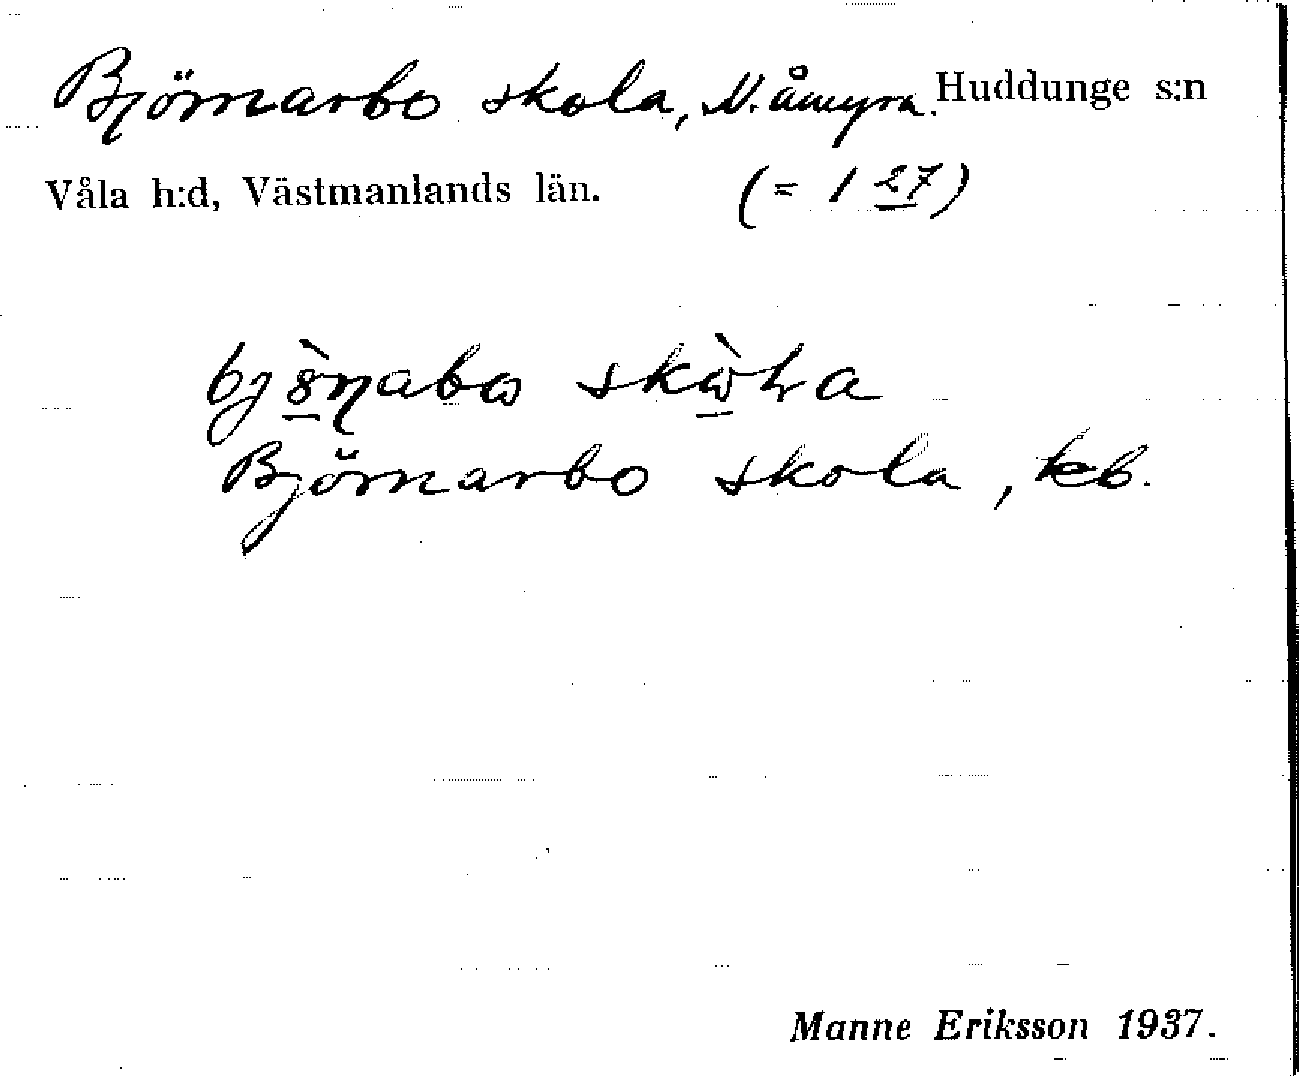 Björnarbo skola, N. åmyra. Huddunge s:n
Våla h:d, Västmanlands län. (= 1 27)
Björnarbo skola, kb.
Manne Eriksson 1937.